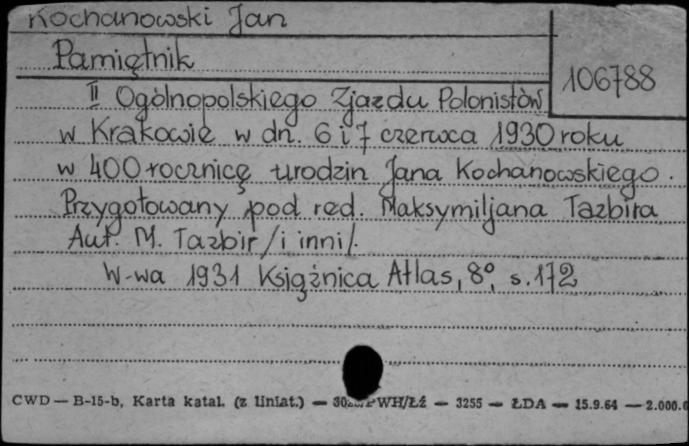 Kochanowski Jan
Pamiętnik
106788
II Ogólnopolskiego Zjazdu Polonistów
w Krakowie w dn. 6 i 7 czerwca 1930 roku
w 400 rocznicę urodzin Jana Kochanowskiego.
Przygotowany pod red. Maksymiljana Tazbira
Aut. M. Tazbir /i inni/.
W-wa 1931 Książnica Atlas, 8°, s. 172
CWD — B-15-b, Karta katal. (z liniat.) — PWH/Łź — 3255 — ŁDA — 15.9.64 — 2.000.0